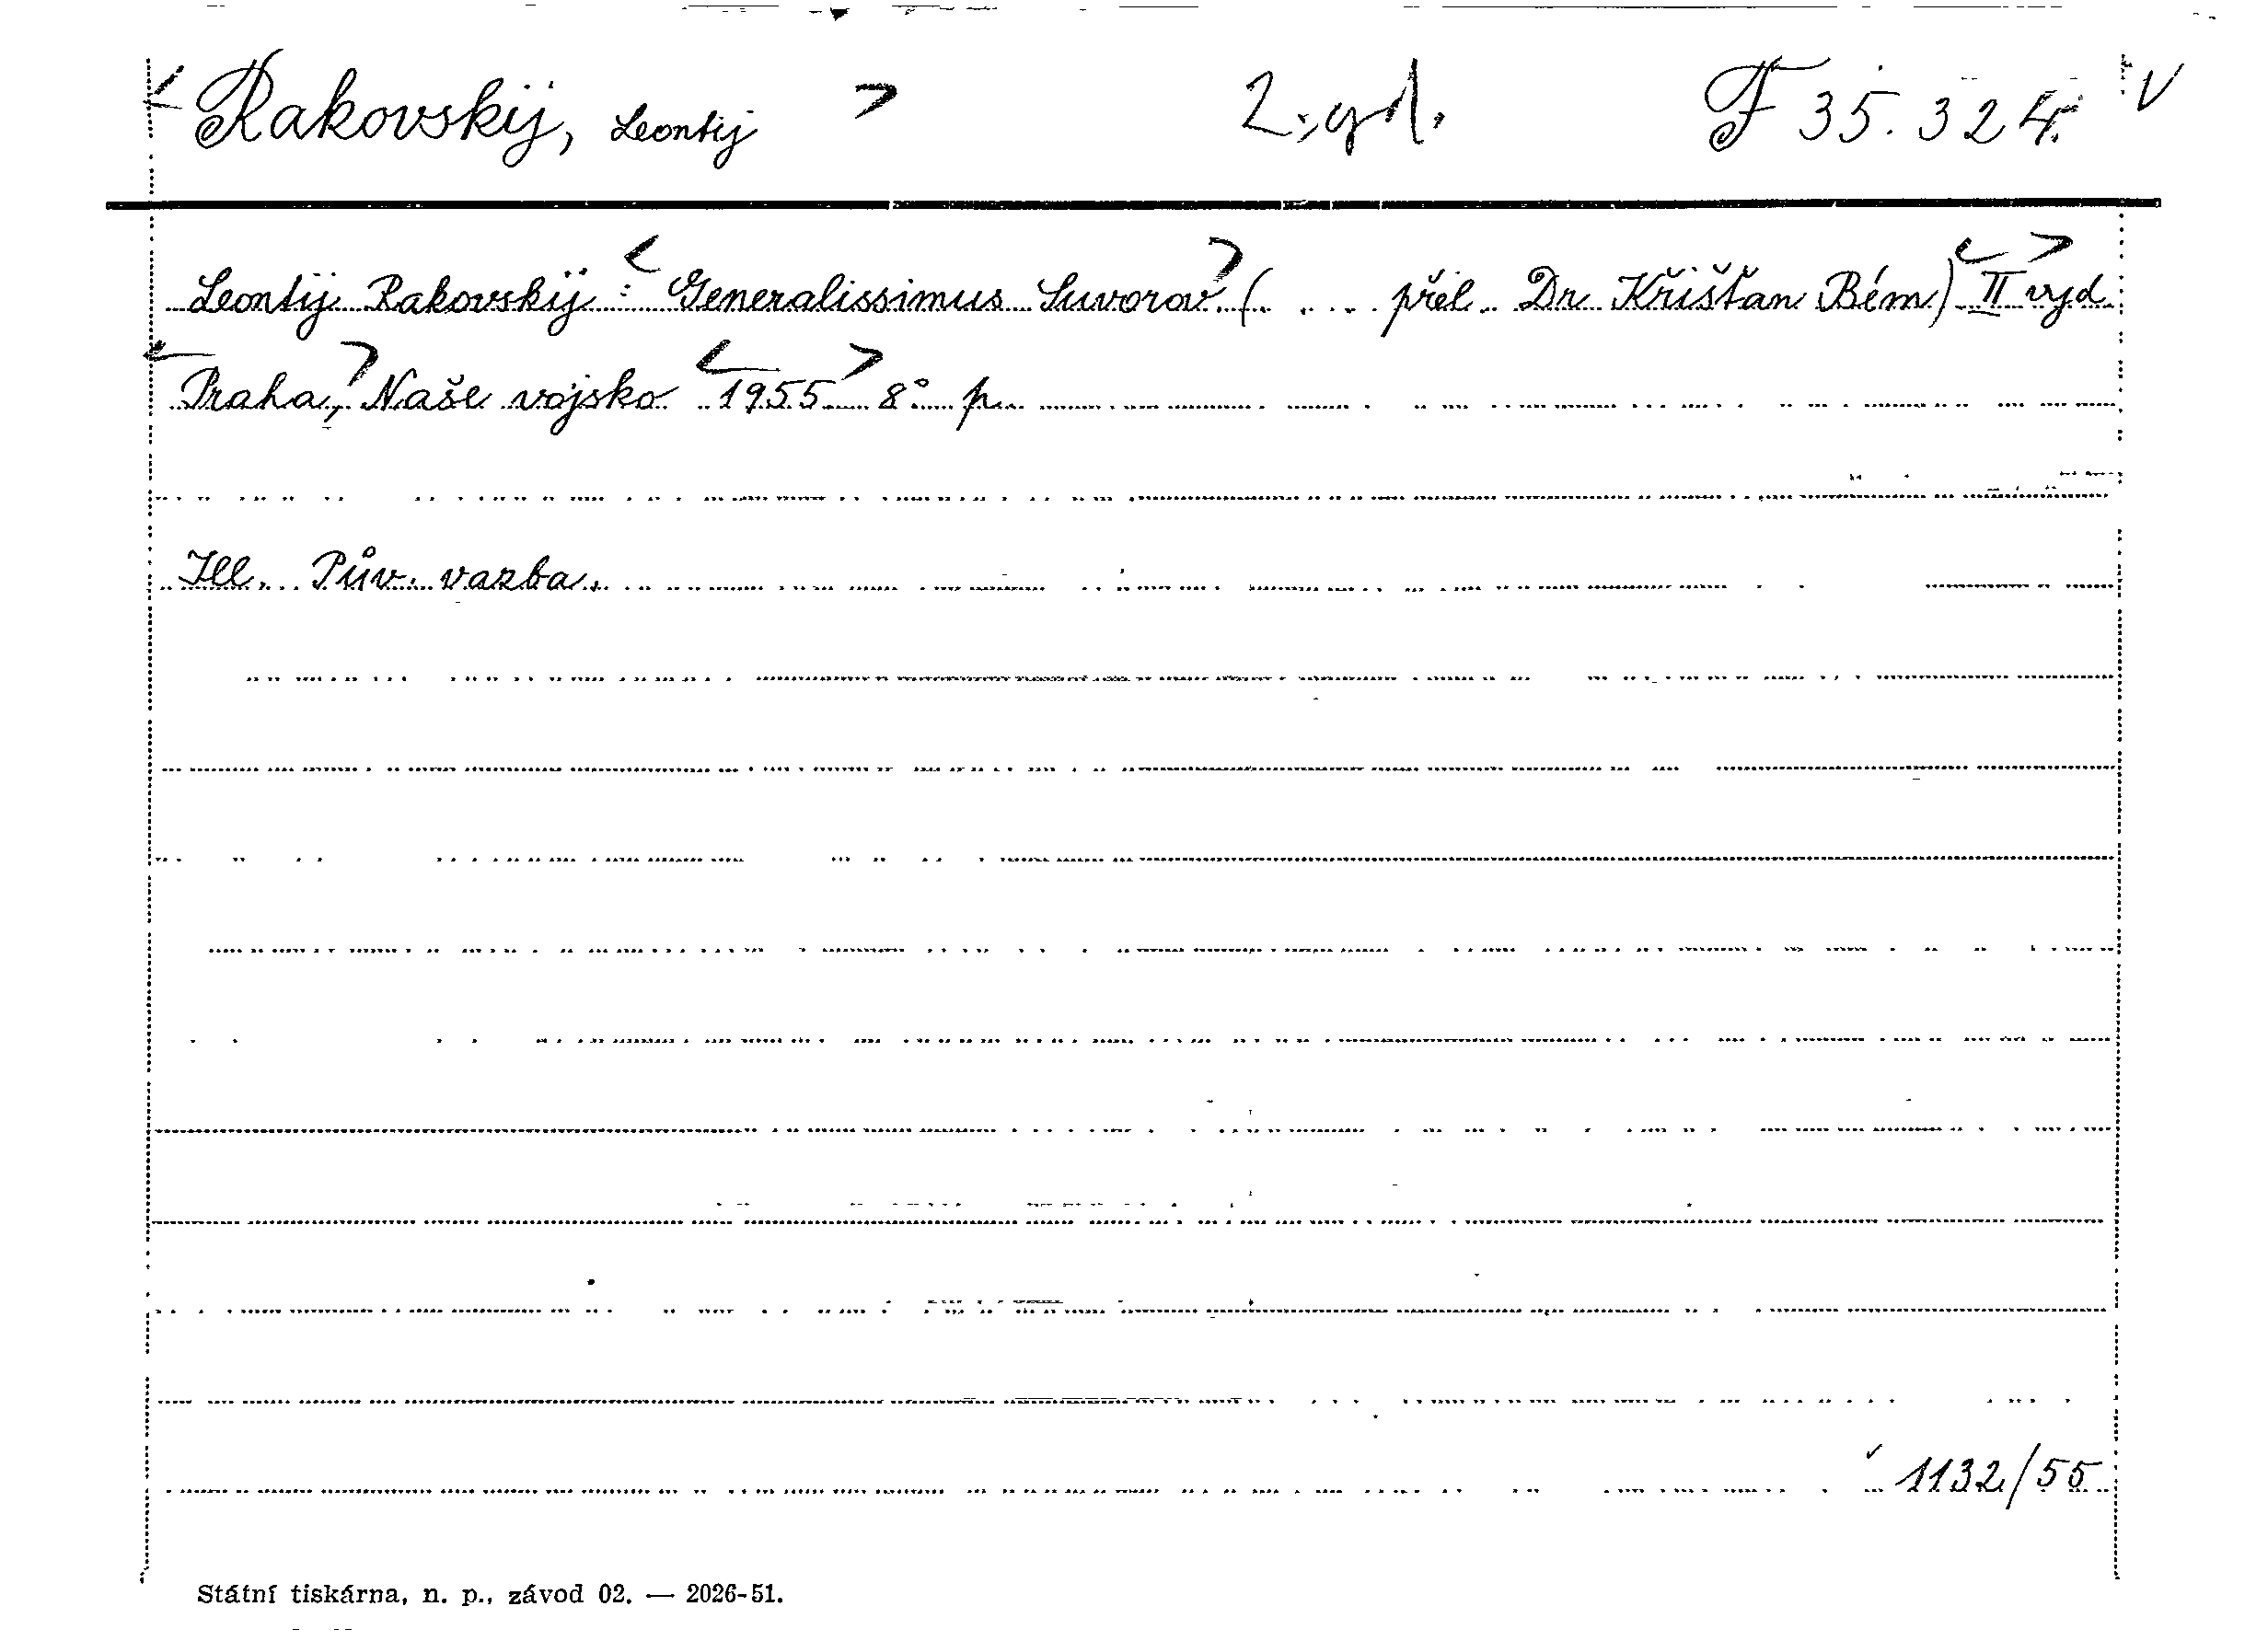 < Rakovskij, Leontij > 2. vyd. F 35.324. V
Leontij Rakovskij : <Generalissimus Suvorov> (. ... přel. Dr Křišťan Bém) <II> vyd.
<Praha,> Naše vojsko <1955> 8° p.
Ill. Pův. vazba.
1132/55
Státní tiskárna, n. p., závod 02. — 2026-51.